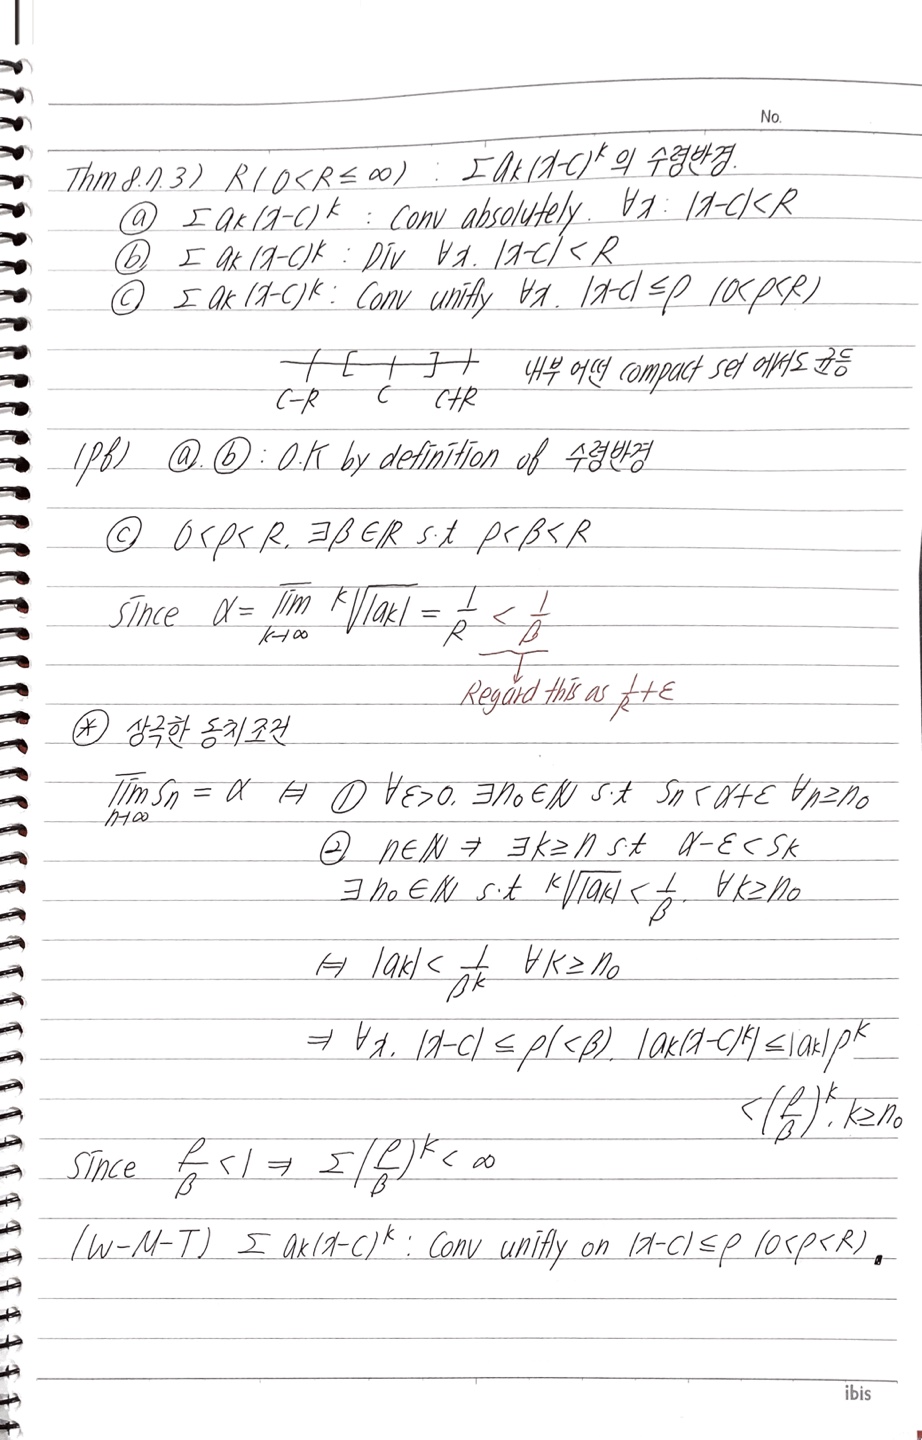 No.
Thm 8.7.3) R (0<R≤∞) : Σ ak(x-c)^k 의 수렴반경.
ⓐ Σ ak(x-c)^k : Conv absolutely. ∀x : |x-c|<R
ⓑ Σ ak(x-c)^k : Div ∀x. |x-c|<R
ⓒ Σ ak(x-c)^k : Conv unifly ∀x. |x-c|≤ρ (0<ρ<R)
내부 어떤 compact set 에서도 균등
C-R C C+R
(pf) ⓐ.ⓑ : O.K by definition of 수렴반경
ⓒ 0<ρ<R. ∃β∈ℝ s.t ρ<β<R
Since α = lim̅ k→∞ ᵏ√|ak| = 1/R < 1/β
Regard this as 1/R+ε
⊛ 상극한 동치조건
lim̅ n→∞ Sn = α ⇔ ① ∀ε>0. ∃n₀∈ℕ s.t Sn<α+ε ∀n≥n₀
② n∈ℕ ⇒ ∃k≥n s.t α-ε<Sk
∃n₀∈ℕ s.t ᵏ√|ak| < 1/β. ∀k≥n₀
⇔ |ak| < 1/β^k ∀k≥n₀
⇒ ∀x. |x-c|≤ρ(<β). |ak(x-c)^k|≤|ak|ρ^k
<(ρ/β)^k. k≥n₀
Since ρ/β<1 ⇒ Σ(ρ/β)^k<∞
(W-M-T) Σ ak(x-c)^k : Conv unifly on |x-c|≤ρ (0<ρ<R).
ibis